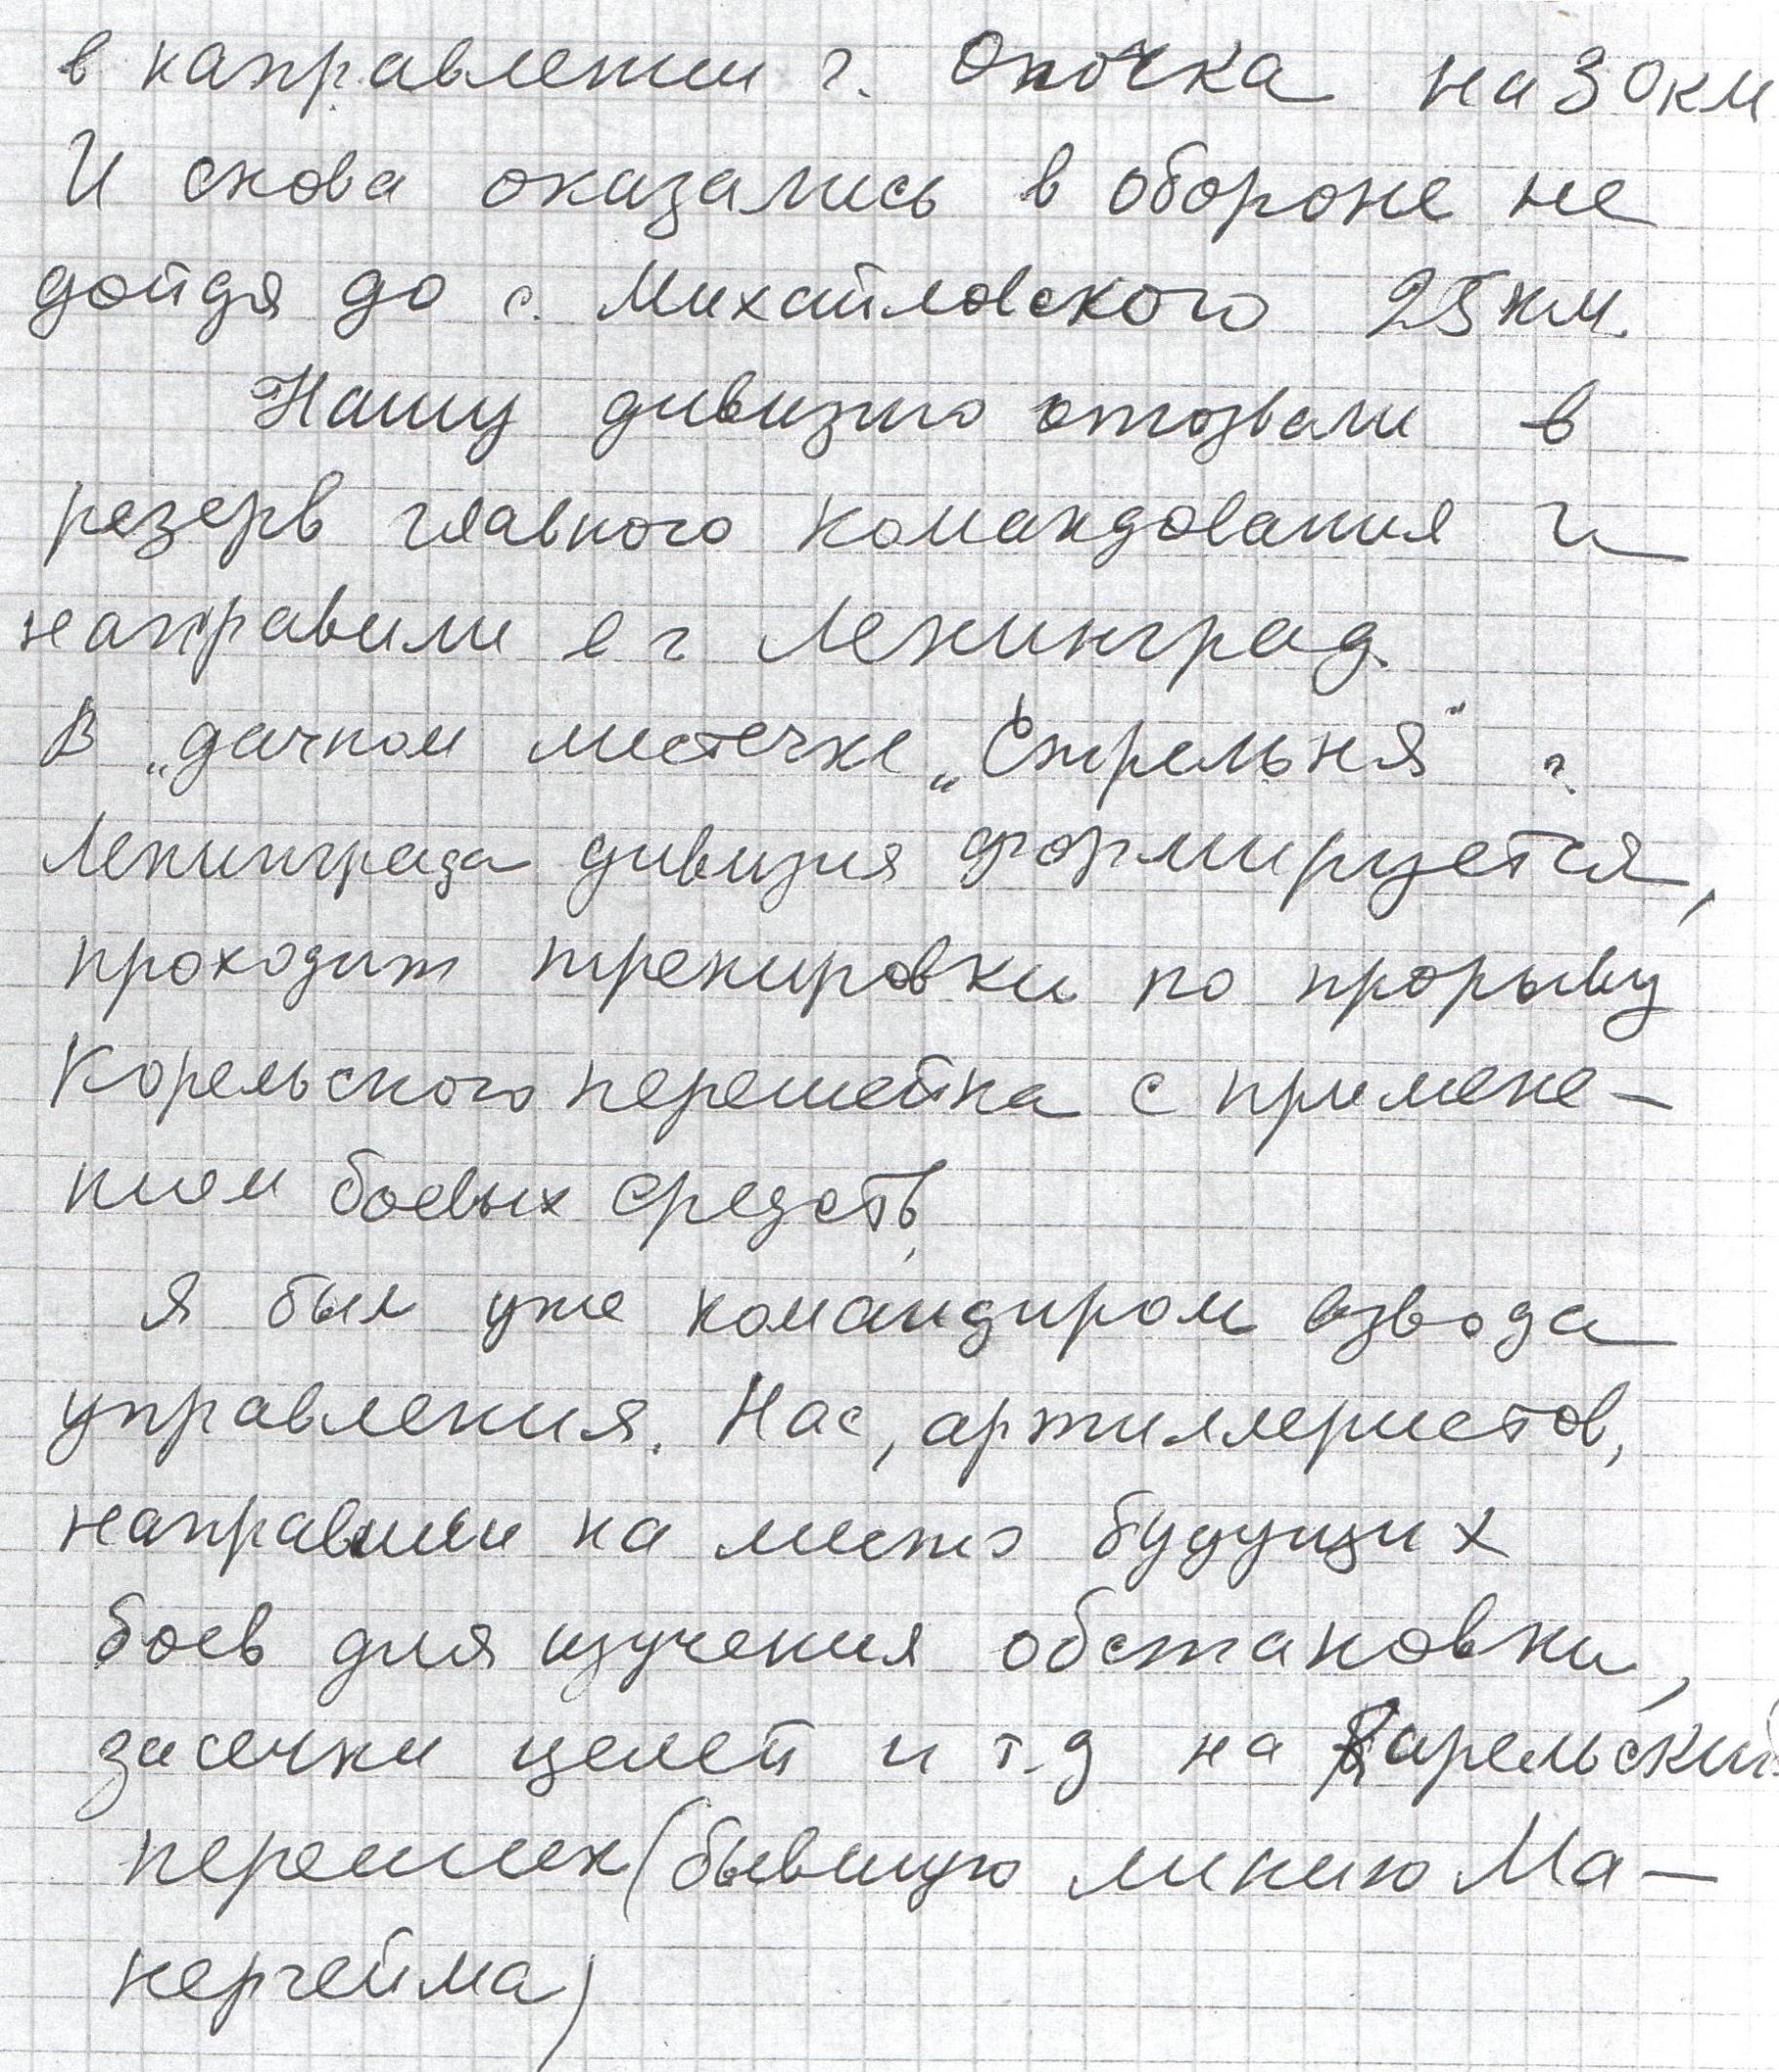 в направлении г. Опочка на 30 км
И снова оказались в обороне не
дойдя до с. Михайловского 25 км.
Нашу дивизию отозвали в
резерв главного командования и
направили в г Ленинград.
В „дачном местечке „Стрельня" г.
Ленинграда дивизия формируется,
проходит тренировки по прорыву
Корельского перешейка с примене-
нием боевых средств,
Я был уже командиром взвода
управления. Нас, артиллеристов,
направили на место будущих
боев для изучения обстановки,
засечки целей и т.д на Карельский
перешеек (бывшую линию Ма-
нергейма)